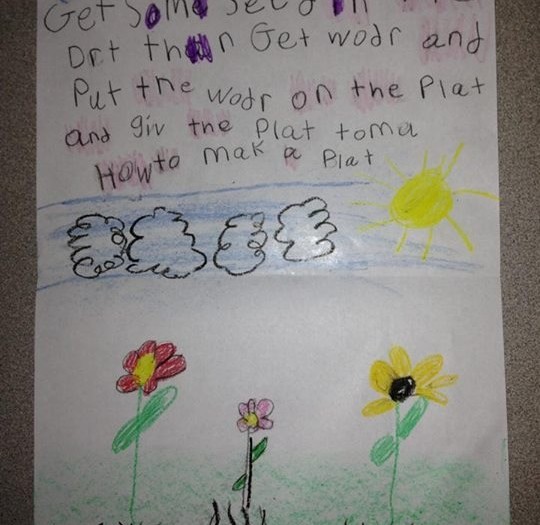 Get Som
Drt than Get wodr and
Put the wodr on the Plat
and giv the Plat toma
Howto mak a Plat